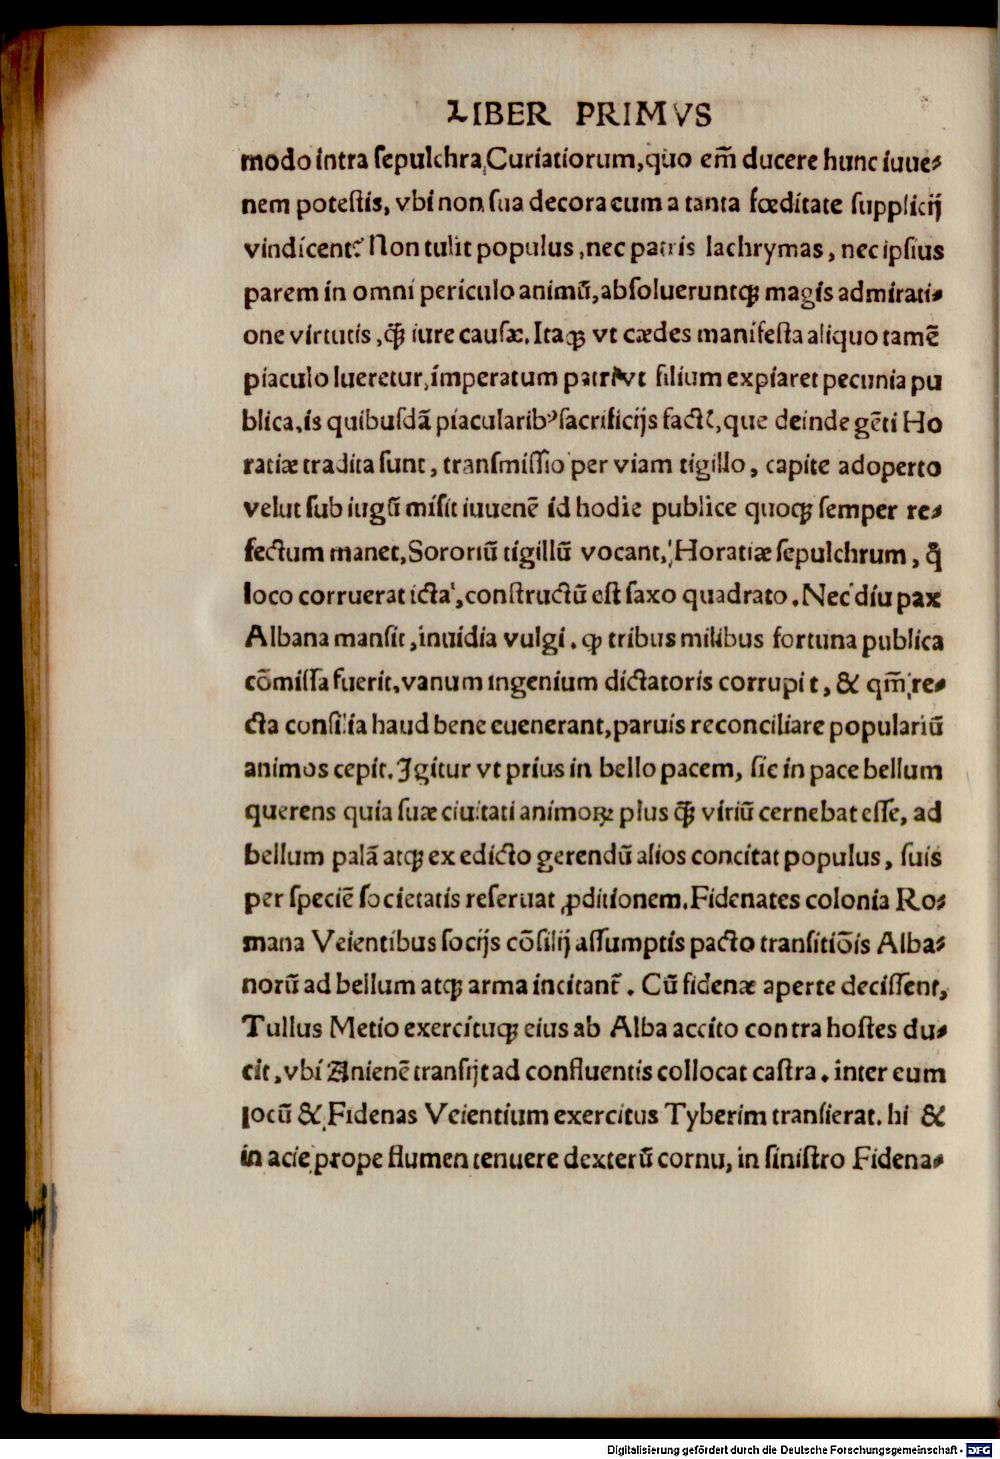 LIBER PRIMVS
modo intra sepulchra Curiatiorum, quo em̃ ducere hunc iuue⸗
nem potestis, vbi non sua decora eum a tanta fœditate supplicij
vindicent? Non tulit populus, nec patris lachrymas, nec ipsius
parem in omni periculo animū, absolueruntqꝫ magis admirati⸗
one virtutis, q̃ꝫ iure causæ. Itaqꝫ vt cædes manifesta aliquo tamē
piaculo lueretur, imperatum patri vt filium expiaret pecunia pu
blica, is quibusdā piacularibꝰ sacrificijs fact, que deinde gēti Ho
ratiæ tradita sunt, transmisso per viam tigillo, capite adoperto
velut sub iugū misit iuuenē id hodie publice quoqꝫ semper re⸗
fectum manet, Sororiū tigillū vocant, Horatiæ sepulchrum, q̊
loco corruerat icta, constructū est saxo quadrato. Nec diu pax
Albana mansit, inuidia vulgi. ꝙ tribus milibus fortuna publica
cōmissa fuerit, vanum ingenium dictatoris corrupit, & qm̃ re⸗
cta consilia haud bene euenerant, paruis reconciliare populariū
animos cepit. Igitur vt prius in bello pacem, sic in pace bellum
querens quia suæ ciuitati animoꝝ plus q̃ꝫ viriū cernebat esse, ad
bellum palā atqꝫ ex edicto gerendū alios concitat populus, suis
per speciē societatis reseruat ꝓditionem. Fidenates colonia Ro⸗
mana Veientibus socijs cōsilij assumptis pacto transitiōis Alba⸗
norū ad bellum atqꝫ arma incitant̃. Cū fidenæ aperte decissent,
Tullus Metio exercituqꝫ eius ab Alba accito contra hostes du⸗
cit, vbi Anienē transijt ad confluentis collocat castra. inter eum
locū & Fidenas Veientium exercitus Tyberim transierat. hi &
in acie prope flumen tenuere dexterū cornu, in sinistro Fidena⸗
Digitalisierung gefördert durch die Deutsche Forschungsgemeinschaft - DFG